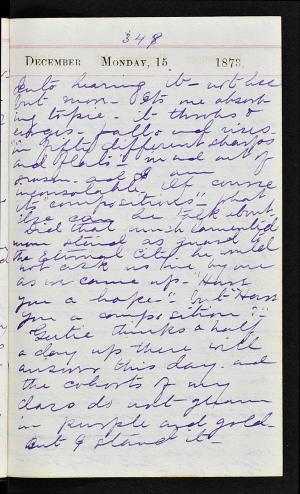 348
December Monday, 15 1873.
into hearing it - not bee
but mon - its one absorb-
ing topic - it throbs &
surges - falls and rises -
in fifty different sharps
and flats - in and out of
season - and I am
inconsolable. Of course
its "compositions" - what
else can be talk about
Did that much lamented
man stand as guard to
the eternal city he would
not ask us one by one
as we came up - "Have
you a hope" - but "Have
you a composition?"
Gertie thinks a half
a day up there will
answer this day. and
the cohorts of my
class do not gleam
in purple and gold -
but I stand it -